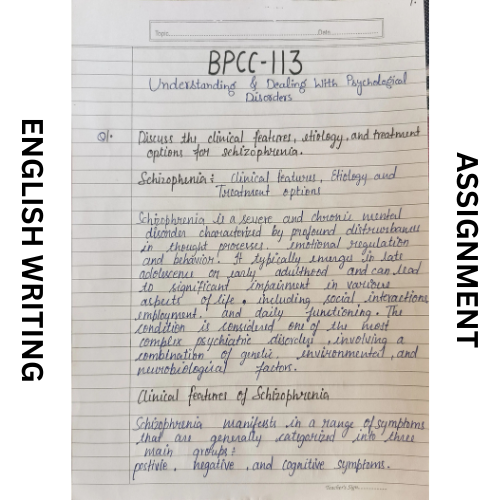 1.
Topic Date
BPCC-113
Understanding & Dealing With Psychological
Disorders
Q1. Discuss the clinical features, etiology, and treatment
options for schizophrenia.
Schizophenia: Clinical features, Etiology and
Treatment options
Schizophrenia is a severe and chronic mental
disorder characterized by profound distrurbances
in thought processes, emotional regulation
and behavior. It typically emerges in late
adolescence or early adulthood and can lead
to significant impairment in various
aspects of life, including social interactions,
employment, and daily functioning. The
condition is considered one of the most
complex psychiatric disorders, involving a
combination of genetic, environmental, and
neurobiological factors.
Clinical features of Schizophrenia
Schizophrenia manifests in a range of symptoms
that are generally categorized into three
main groups:
positive, negative, and cognitive symptoms.
Teacher's Sign
ENGLISH WRITING
ASSIGNMENT